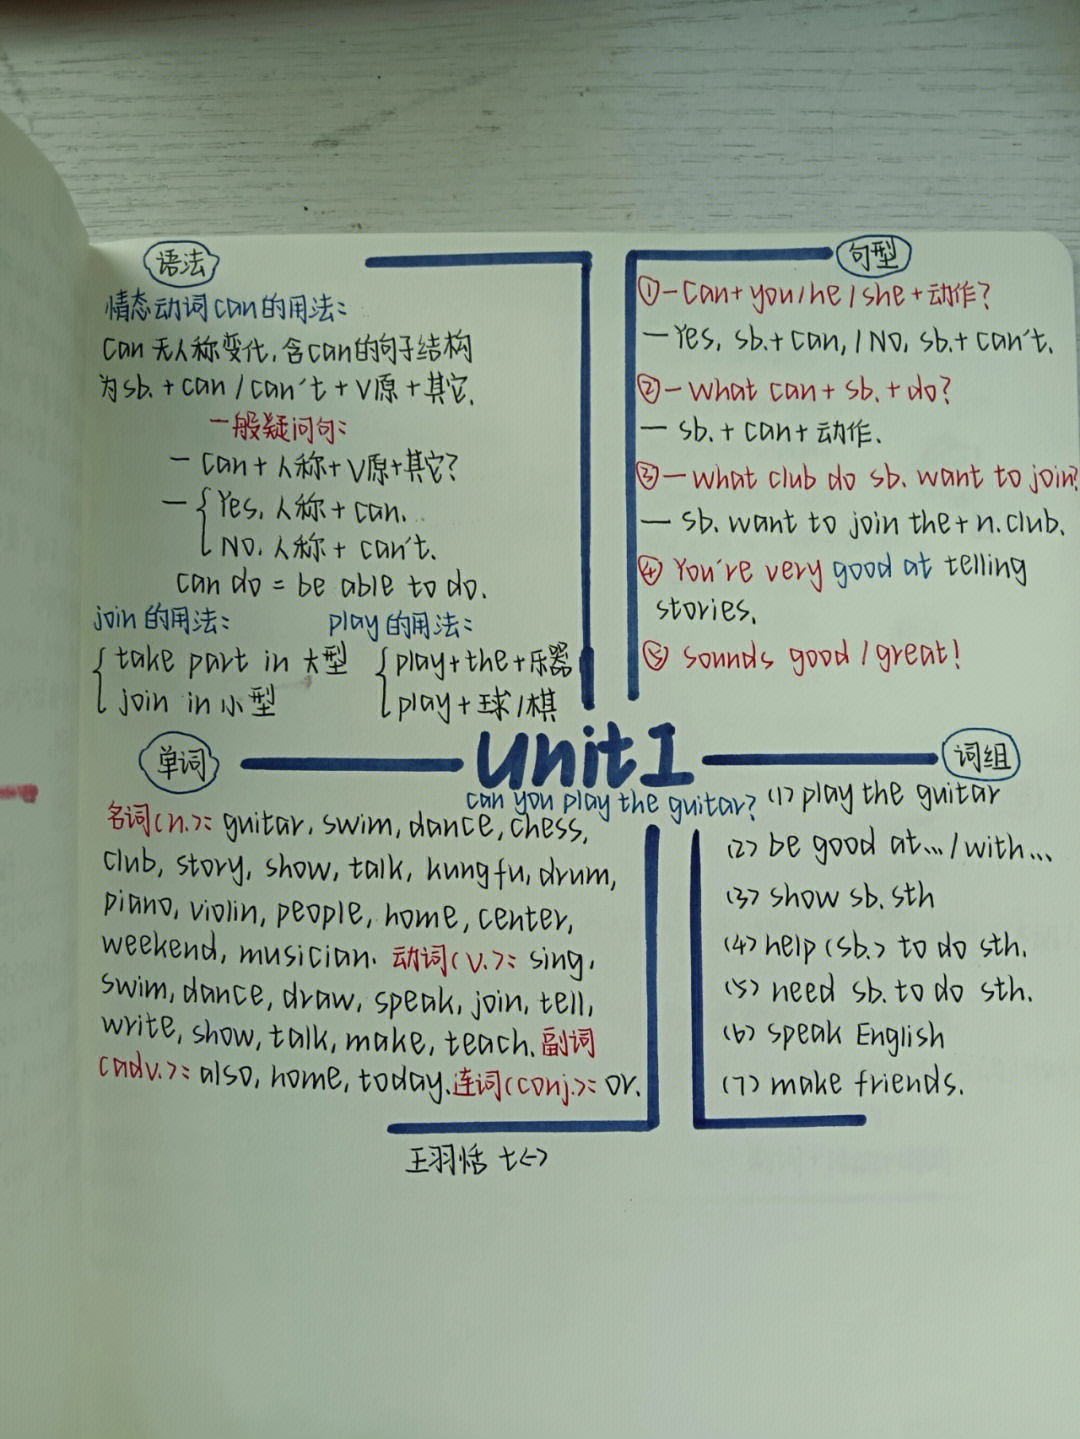 语法
情态动词can的用法:
can 无人称变化,含can的句子结构
为sb.+can/can't+V原+其它.
一般疑问句:
— can+人称+V原+其它?
— { Yes, 人称+can.
No. 人称+can't.
can do = be able to do.
join的用法:
{ take part in 大型
join in 小型
play的用法:
{ play+the+乐器
play+球/棋
句型
①—Can+you/he/she+动作?
—Yes, sb.+can,/No, sb.+can't.
②—what can+sb.+do?
—sb.+can+动作.
③—what club do sb. want to join?
—sb. want to join the+n.club.
④ You're very good at telling
stories.
⑤ sounds good/great!
unit1
can you play the guitar?
单词
名词(n.): guitar, swim, dance, chess,
club, story, show, talk, kungfu, drum,
piano, violin, people, home, center,
weekend, musician. 动词(v.): sing,
swim, dance, draw, speak, join, tell,
write, show, talk, make, teach. 副词
(adv.): also, home, today. 连词(conj.): or.
词组
(1) play the guitar
(2) be good at.../with...
(3) show sb. sth
(4) help (sb.) to do sth.
(5) need sb. to do sth.
(6) speak English
(7) make friends.
王羽恬